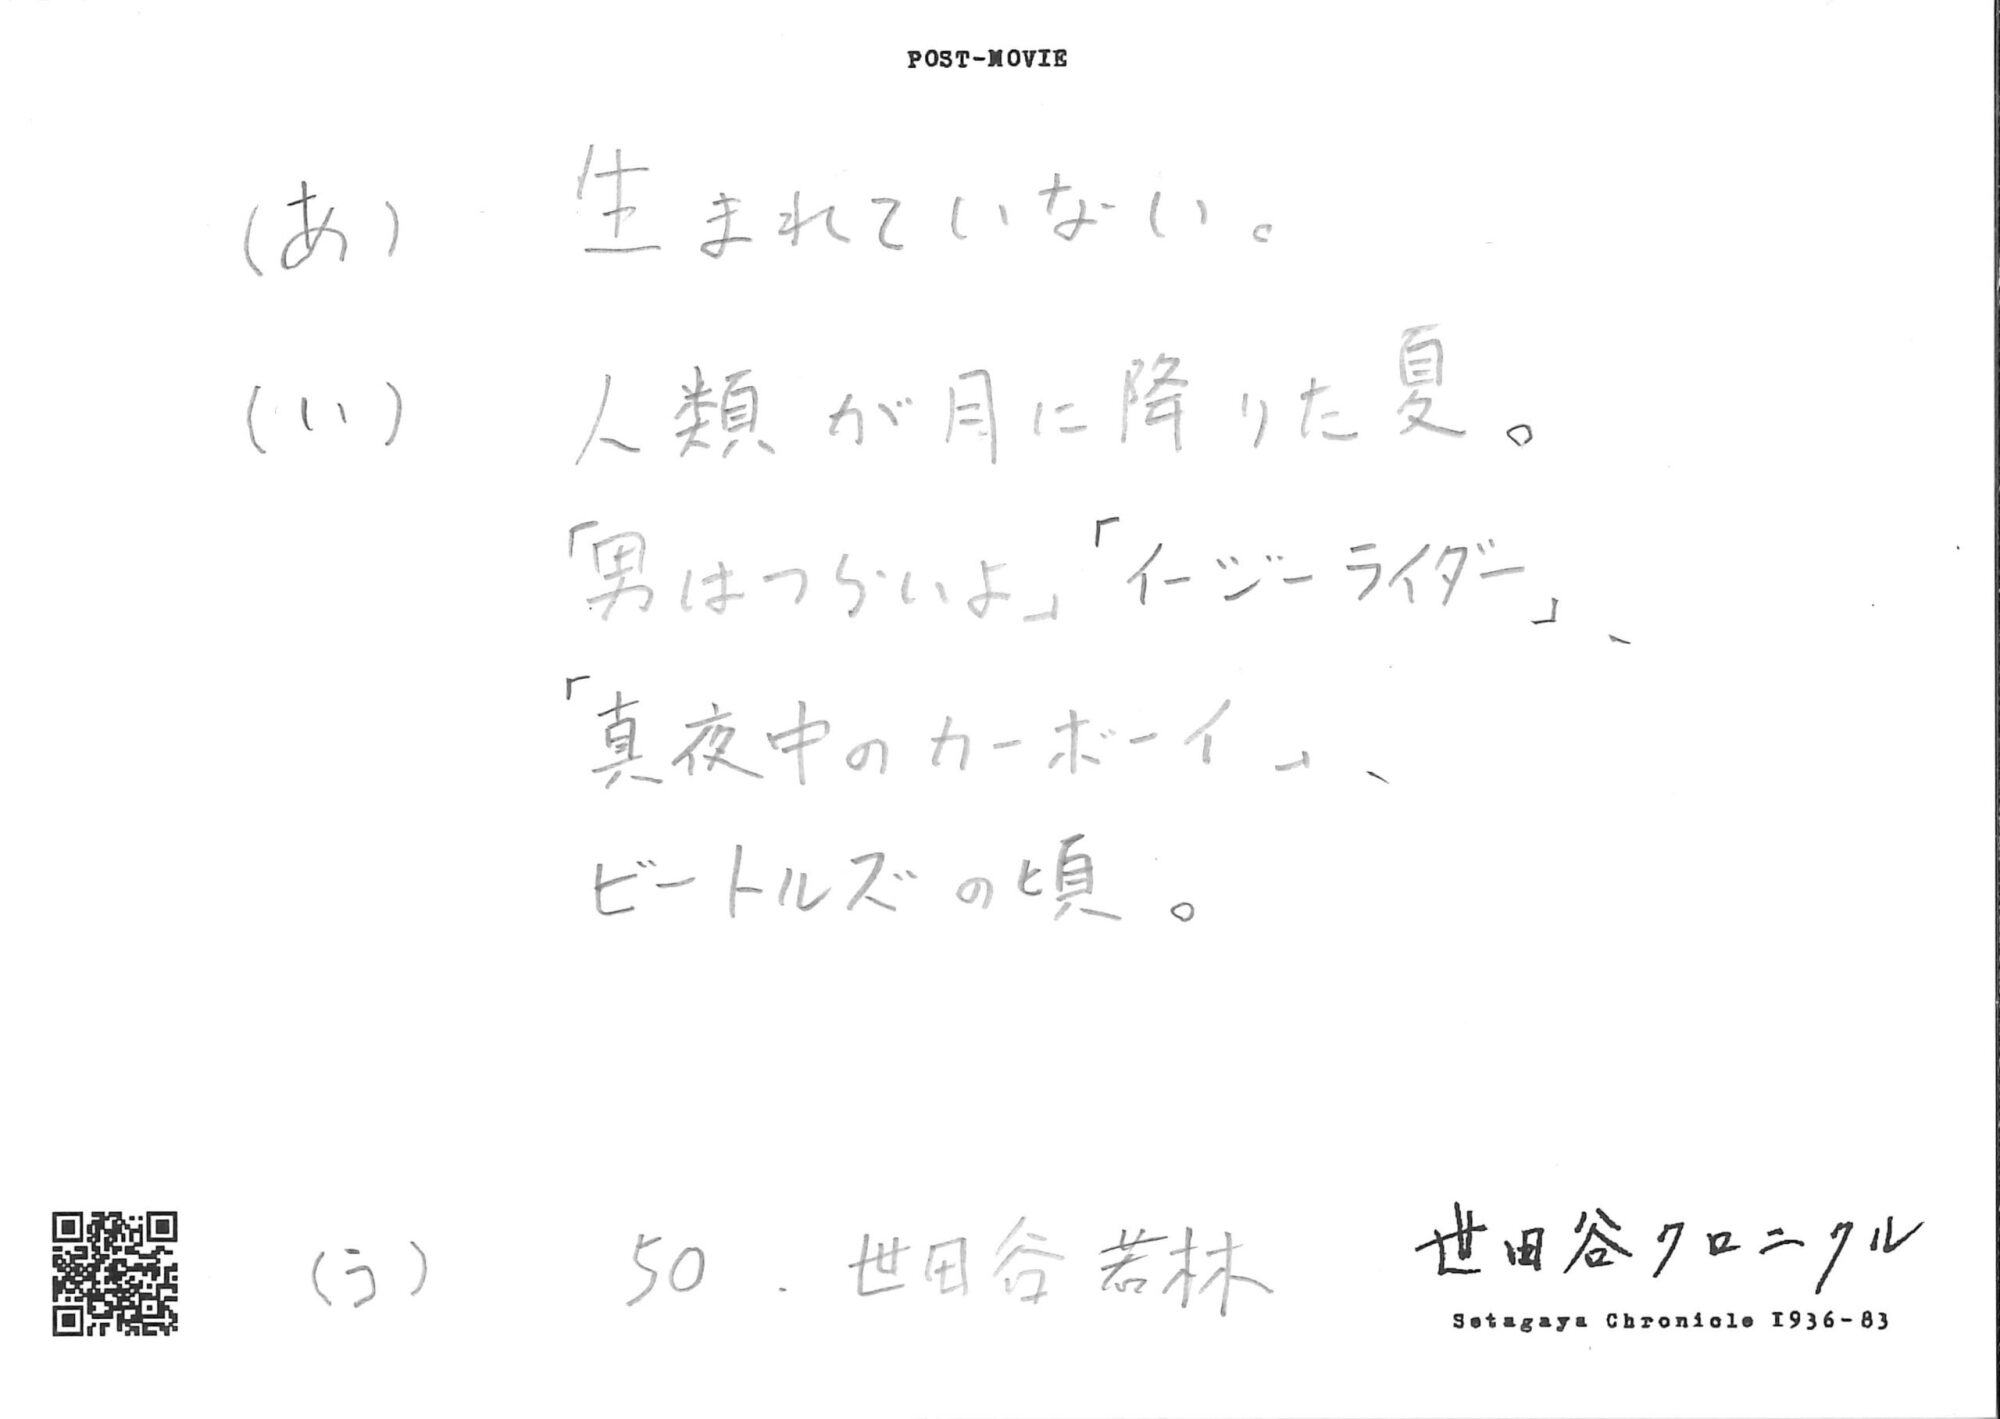 POST-MOVIE
(あ) 生まれていない。
(い) 人類が月に降りた夏。
「男はつらいよ」「イージーライダー」、
「真夜中のカーボーイ」、
ビートルズの頃。
(う) 50. 世田谷若林
世田谷クロニクル
Setagaya Chronicle 1936-83